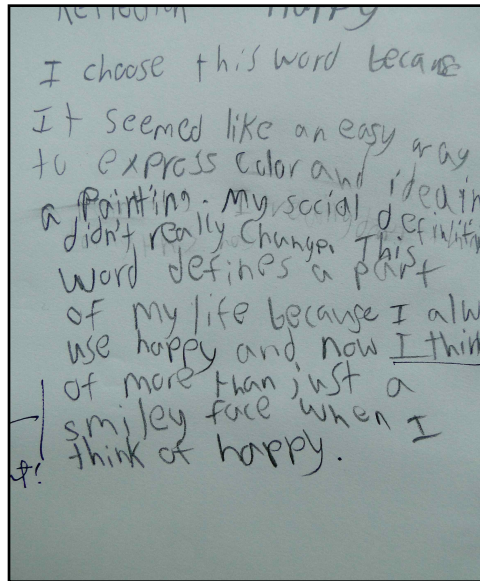 Reflection Happy
I choose this word because
It seemed like an easy way
to express color and idea in
a painting. My social definition
didn't really change. This
word defines a part
of my life because I alw
use happy and now I thin
of more than just a
smiley face when I
think of happy.